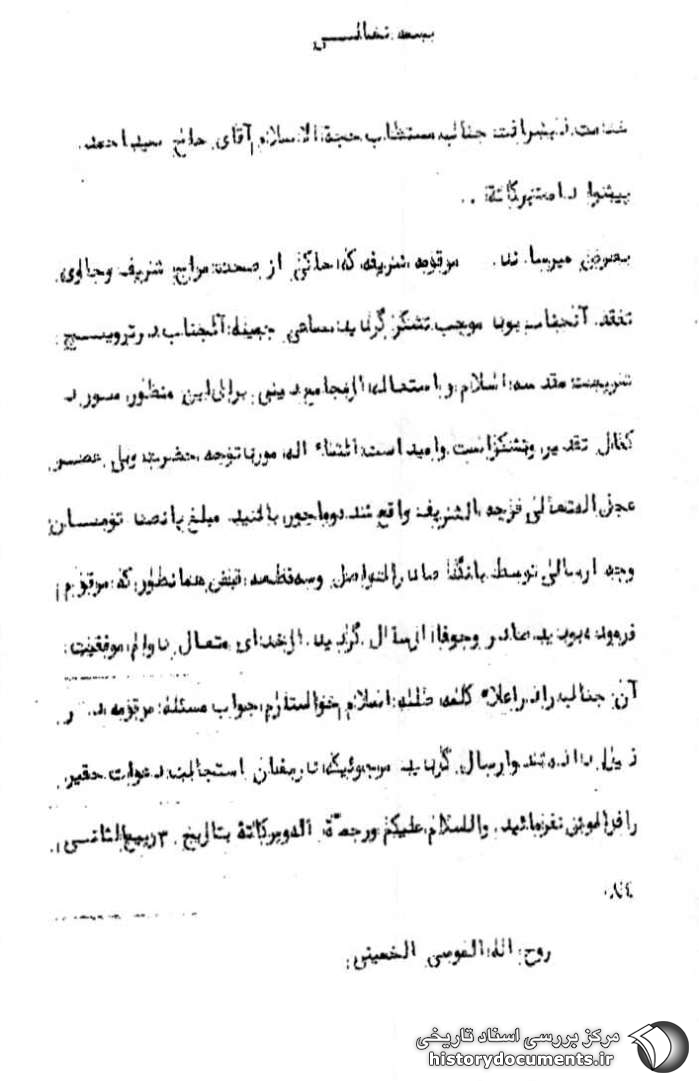 بسمه تعالی
خدمت ذیشرافت جناب مستطاب حجة الاسلام آقای حاج سید احمد
پیشوا دامت برکاته ..
بعرض میرساند. مرقومه شریفه که حاکی از صحت مزاج شریف وحاوی
تفقد آنجناب بود موجب تشکر گردید مساعی جمیله آنجناب در ترویج
شریعت مقدسه اسلام و دینی برای این منظور مورد
کمال تقدیر وتشکر است وامید است انشاء اله مورد توجه حضرت ولی عصر
عجل اله تعالی فرجه الشریف واقع شده وماجور باشید مبلغ پانصد تومان
وجه ارسالی توسط بانک صادرات واصل وسه قطعه قبض همانطور که مرقوم
فرموده بودید صادر وجوفا ارسال گردید. ازخدای متعال دوام موفقیت
آن جناب را در اعلاء کلمه طیبه اسلام خواستارم جواب مسئله مرقومه در
ذیل داده شد وارسال گردید مرجو اینکه در مظان استجابت دعوات حقیر
را فراموش نفرمائید. والسلام علیکم ورحمة اله وبرکاته بتاریخ ۳ ربیع الثانی
۸٤
روح اله الموسی الخمینی
مرکز بررسی اسناد تاریخی
historydocuments.ir